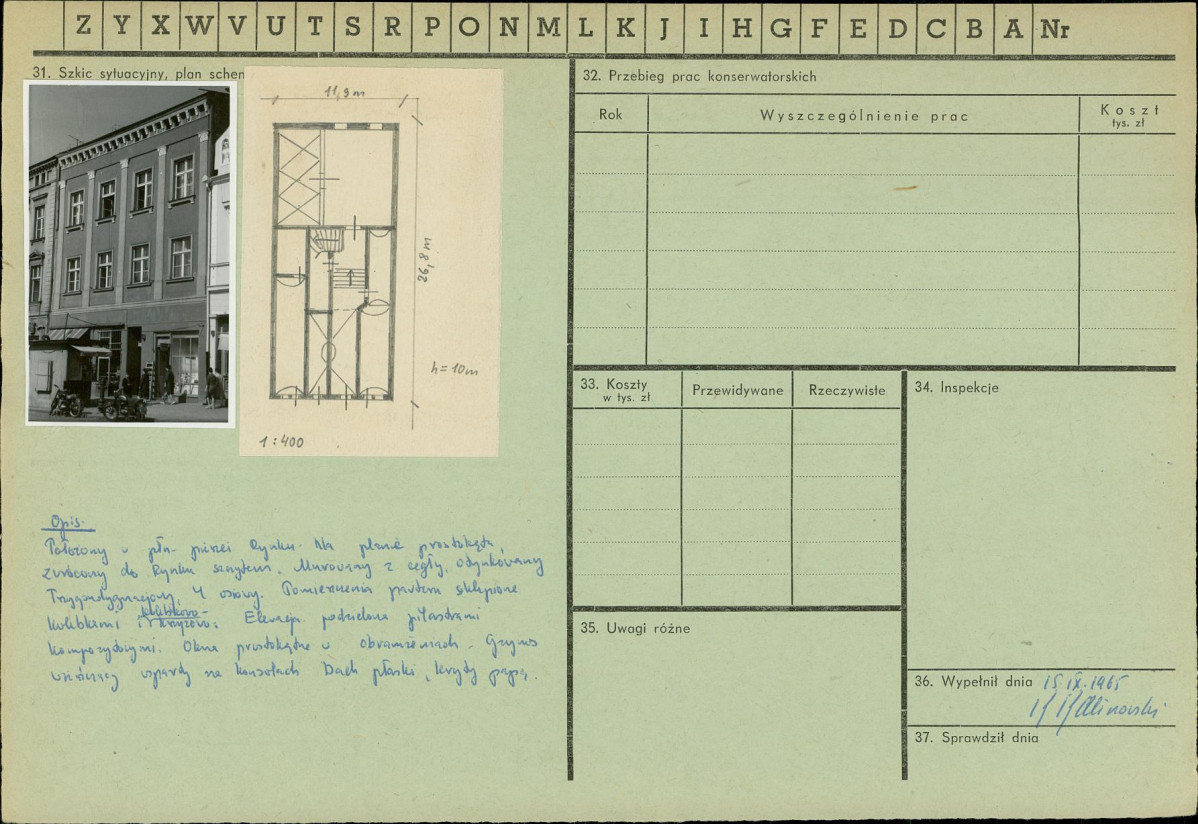 Z Y X W V U T S R P O N M L K J I H G F E D C B A Nr
31. Szkic sytuacyjny, plan schem
11,9 m
26,8 m
h = 10m
1 : 400
Opis.
Położony w płn. pierzei Rynku. Na planie prostokąta,
zwrócony do Rynku szczytem. Murowany z cegły, otynkowany
Trzykondygnacyjny, 4 osiowy. Pomieszczenia parteru sklepione
kolebkowo-
kolebkami i krzyżowo. Elewacja podzielona pilastrami
kompozytowymi. Okna prostokątne w obramieniach. Gzyms
wieńczący wsparty na konsolach Dach płaski, kryty papą.
32. Przebieg prac konserwatorskich
Rok Wyszczególnienie prac Koszt
tys. zł
33. Koszty
w tys. zł
Przewidywane Rzeczywiste
34. Inspekcje
35. Uwagi różne
36. Wypełnił dnia 15.IX.1965
Kalinowski
37. Sprawdził dnia